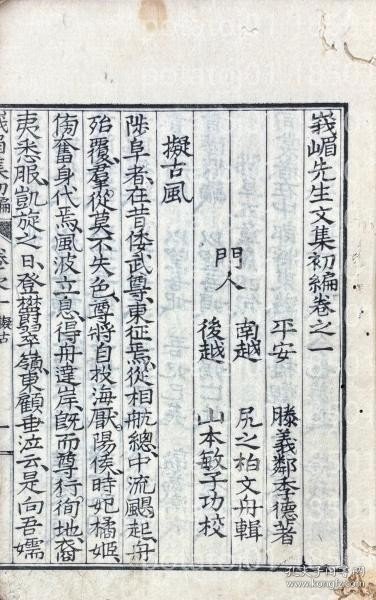 峩嵋先生文集初編卷之一
平安 滕義鄰李德著
門人 南越 尻之柏文舟輯
後越 山本敏子功校
擬古風
陟阜者在昔倭武尊東征焉從相航總中流颶起舟
殆覆羣從莫不失色尊將自投海厭陽侯時妃橘姬
倄奮身代焉風波立息得舟達岸旣而尊行徇地裔
夷悉服凱旋之日登欝翠嶺東顧垂泣云是向吾嬬
初編 卷之一 擬古 一